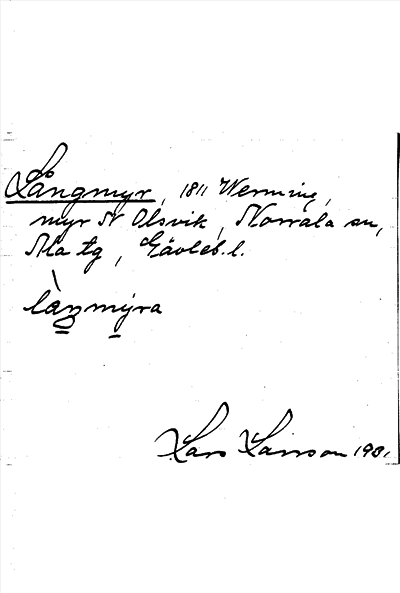 Långmyr, 1811 Werming,
myr N Olsvik, Norrala sn,
Ma tg, Gävleb. l.
làŋmýra
Lars Larsson 1981